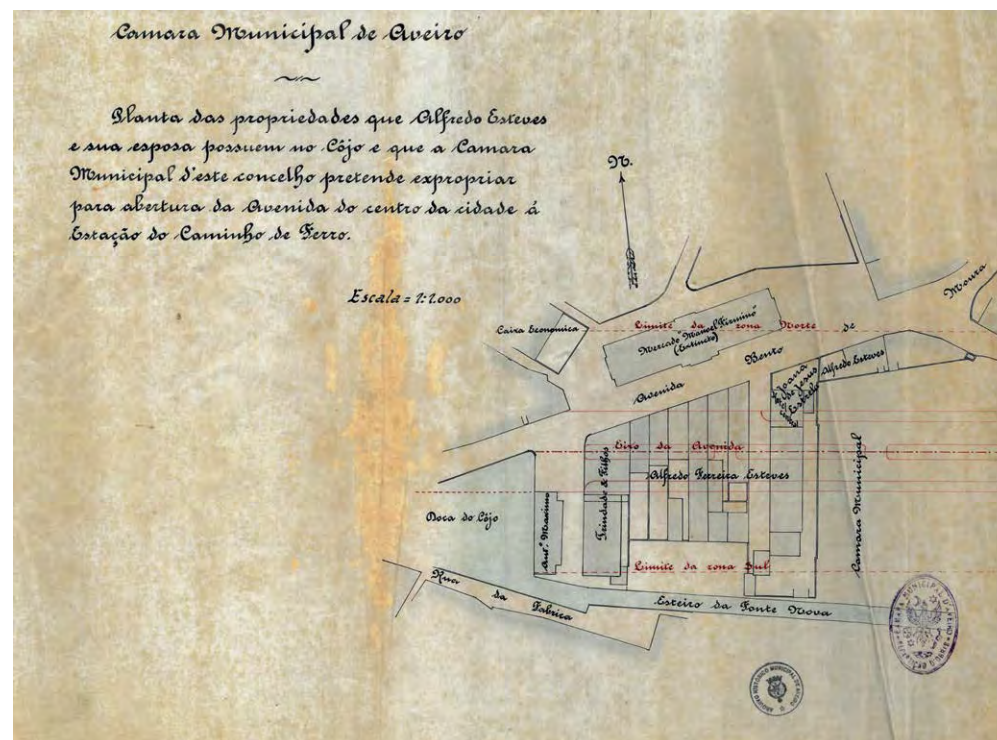 Camara Municipal de Aveiro
Planta das propriedades que Alfredo Esteves
e sua esposa possuem no Côjo e que a Camara
Municipal d'este concelho pretende expropriar
para abertura da Avenida do centro da cidade á
Estação do Caminho de Ferro.
Escala = 1:1.000
N.
Moura
Caixa Economica
Limite da zona Norte de
Mercado "Manoel Firmino"
(Extincto)
Avenida Bento
Joana
de Jesus
Estrela
Alfredo Esteves
Eixo da Avenida
Alfredo Ferreira Esteves
Trindade & Filhos
Camara Municipal
Doca do Côjo
Antº. Maximo
Limite da zona Sul
Rua da Fabrica
Esteiro da Fonte Nova